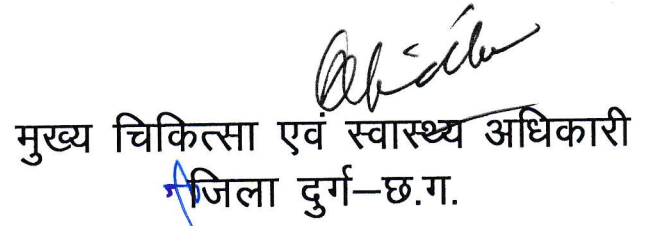 मुख्य चिकित्सा एवं स्वास्थ्य अधिकारी
जिला दुर्ग–छ.ग.